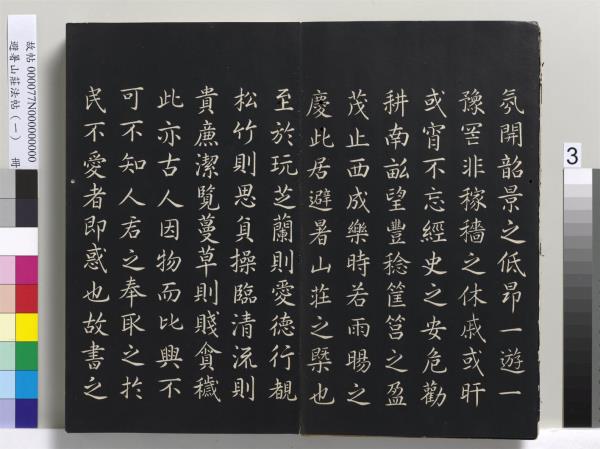 氛開韶景之低昂一遊一
豫罔非稼穡之休戚或旰
或宵不忘經史之安危勸
耕南畝望豐稔筐筥之盈
茂止西成樂時若雨暘之
慶此居避暑山莊之槩也
至於玩芝蘭則愛德行覩
松竹則思貞操臨清流則
貴廉潔覽蔓草則賤貪穢
此亦古人因物而比興不
可不知人君之奉取之於
民不愛者即惑也故書之
故帖 000077N000000000
避暑山莊法帖(一) 冊
3